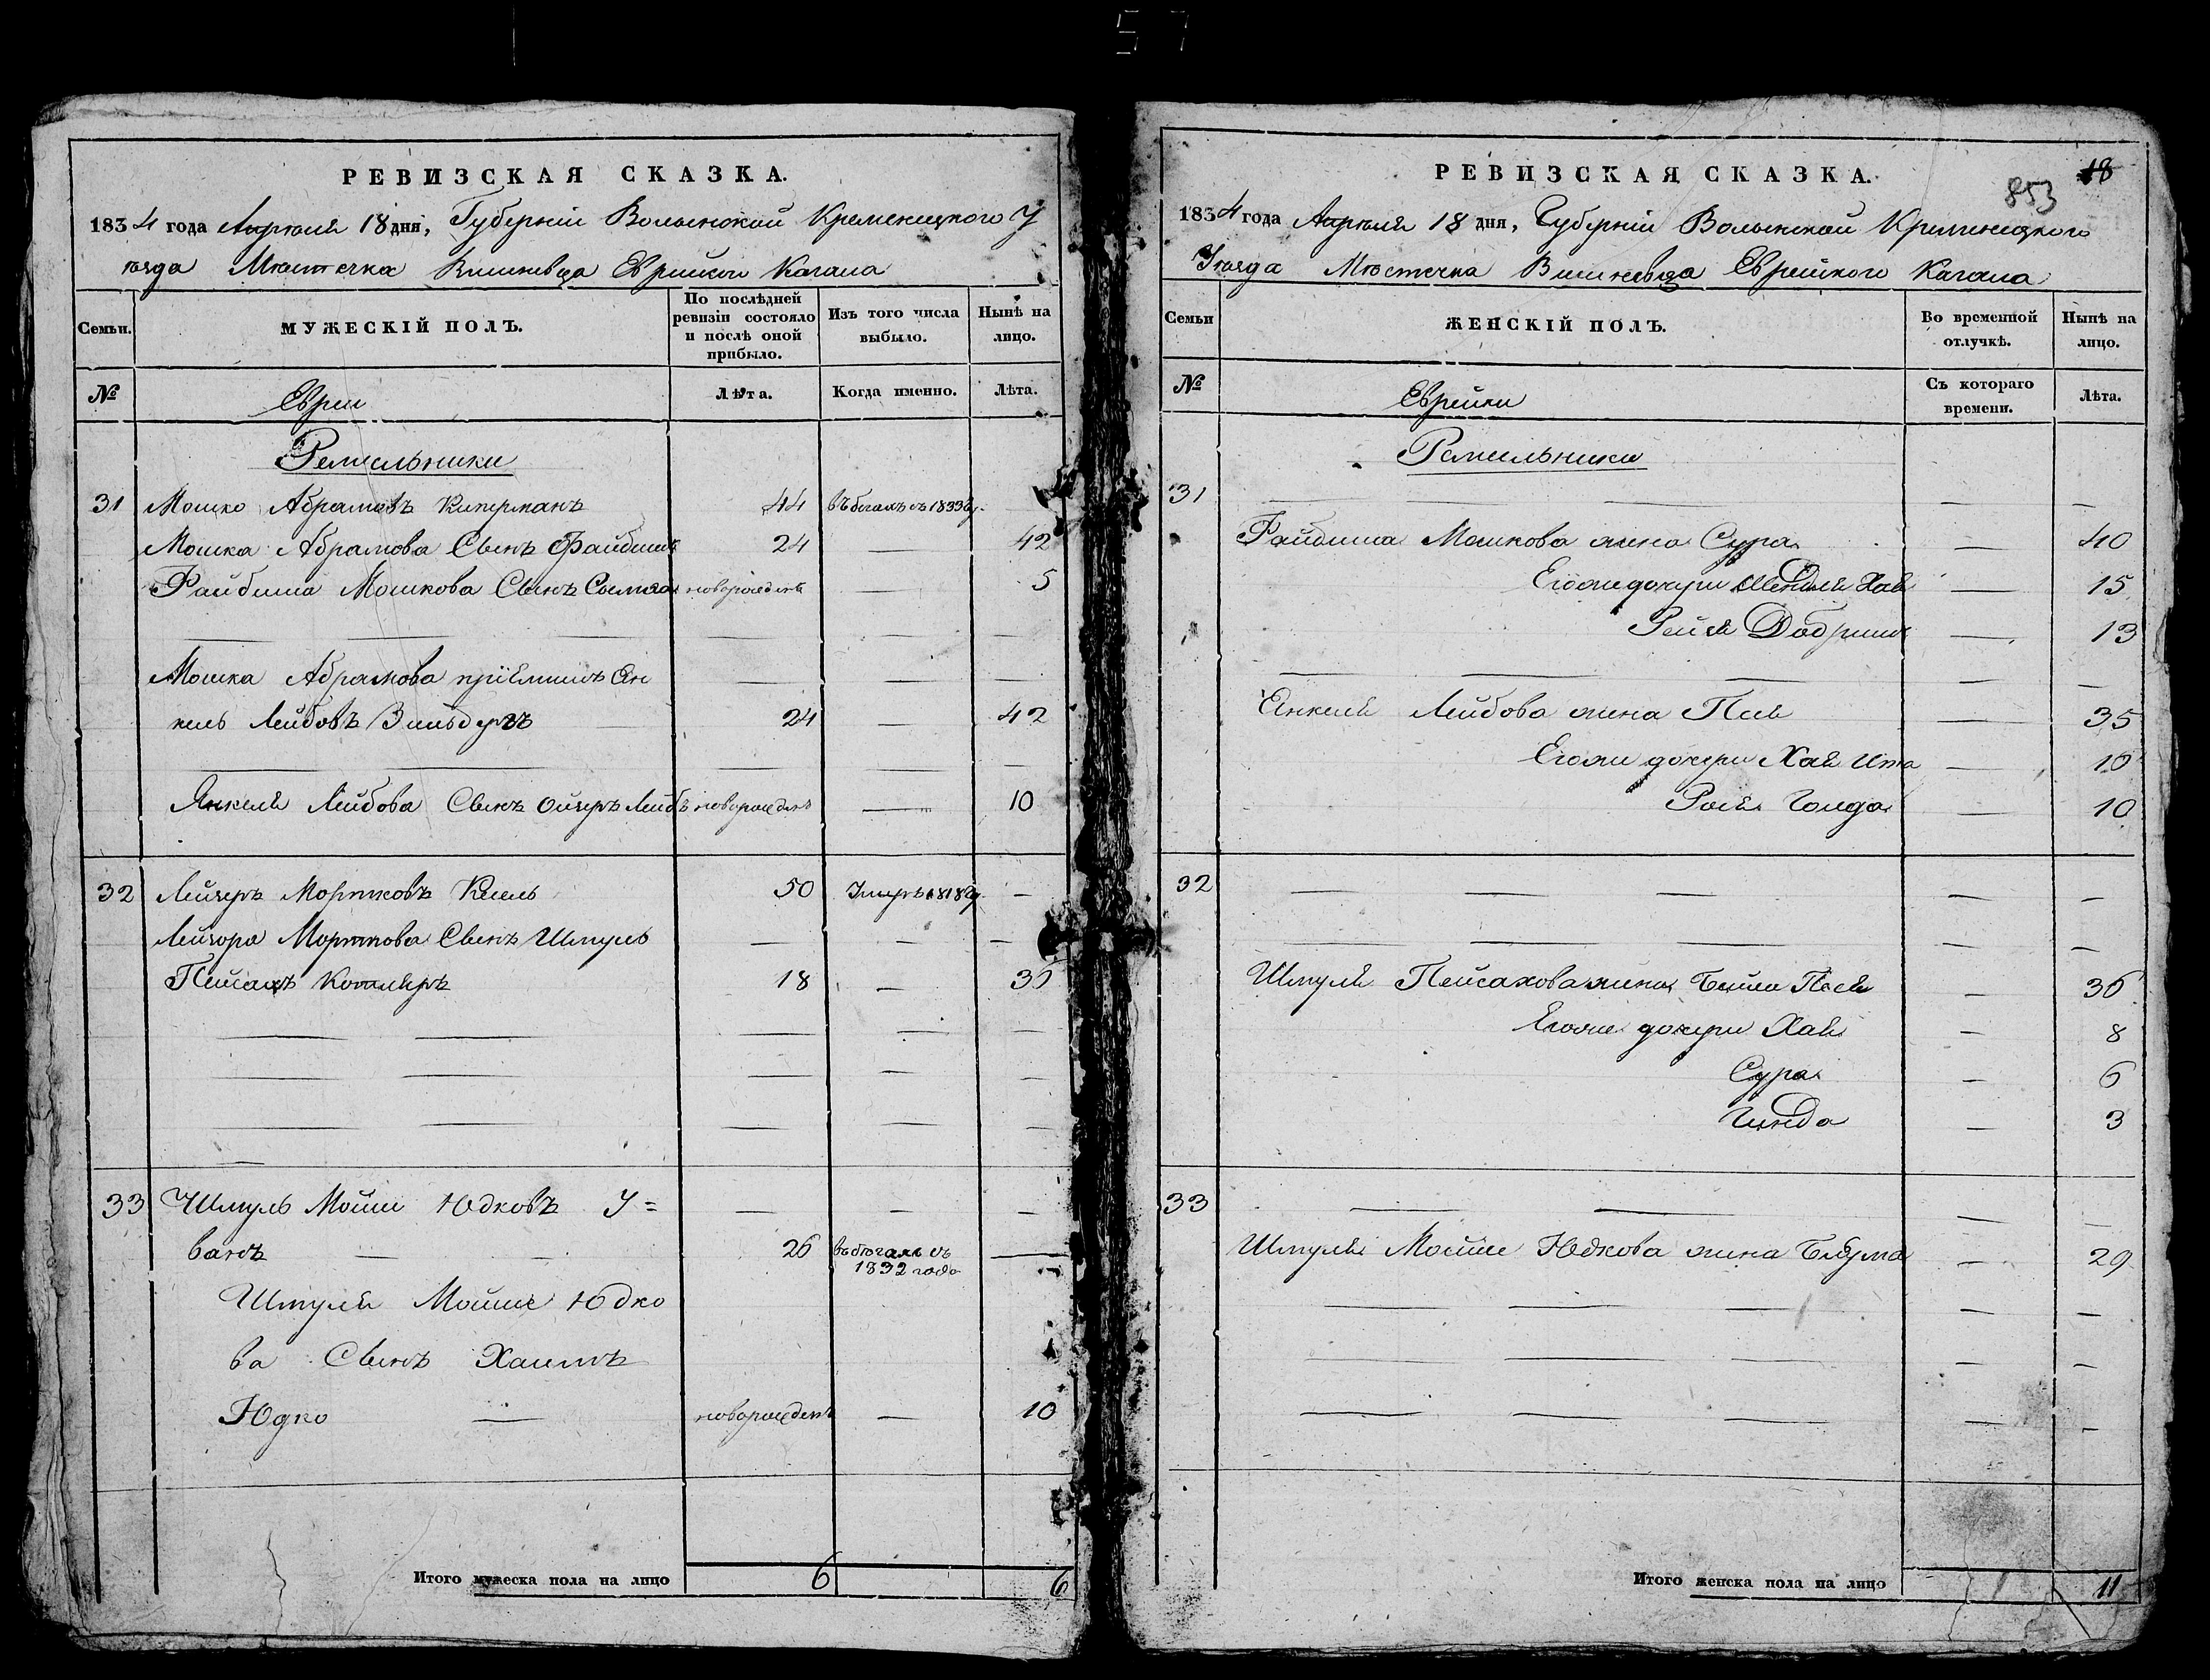 РЕВИЗСКАЯ СКАЗКА.
1834 года Апреля 18 дня, Губерніи Волынской Кременецкого У
ѣзда Мѣстечка Вишневца Еврейского Кагала
Семьи.
МУЖЕСКІЙ ПОЛЪ.
По послѣдней ревизіи состояло и послѣ оной прибыло.
Изъ того числа выбыло.
Нынѣ на лицо.
№
Евреи
Лѣта.
Когда именно.
Лѣта.
Ремесльники
31 Мошко Абрамовъ Киперманъ 44 въ бегахъ съ 1833 г.
Мошка Абрамова Сынъ Файбишъ 24 — 42
Файбиша Мошкова Сынъ новорожденъ — 5
Мошка Абрамова пріемышъ Ян
кель Лейбовъ Зильберъ 24 — 42
Янкеля Лейбова Сынъ Ойзеръ Лейбъ новорожденъ — 10
32 Лейзеръ Мортковъ Кисель 50 Умеръ 1818 г. —
Лейзора Морткова Сынъ Шмуль — — —
Пейсахъ 18 — 36
33 Шмуль Мойше Юдковъ У=
ванъ — — 26 въ бѣгахъ съ 1832 года —
Шмуля Мойше Юдко
ва Сынъ Хаимъ
Юдко — новорожденъ — 10
Итого мужеска пола на лицо 6 6
18
853
РЕВИЗСКАЯ СКАЗКА.
1834 года Апреля 18 дня, Губерніи Волынской Кременецкого
Уѣзда Мѣстечка Вишневца Еврейского Кагала
Семьи
ЖЕНСКІЙ ПОЛЪ.
Во временной отлучкѣ.
Нынѣ на лицо.
№
Еврейки
Съ котораго времени.
Лѣта.
Ремесльники
31
Файбиша Мошкова жена Сура — 40
Егоже дочери Шендля Хая — 15
Рейзя Добриша — 13
Янкеля Лейбова жена Песя — 35
Егоже дочери Хая Ита — 16
Рося Голда — 10
32
Шмуля Пейсахова жена Бейла Песя — 36
Егоже дочери Хая — 8
Сура — 6
Гинда — 3
33
Шмуля Мойше Юдкова жена Блюма — 29
Итого женска пола на лицо 11